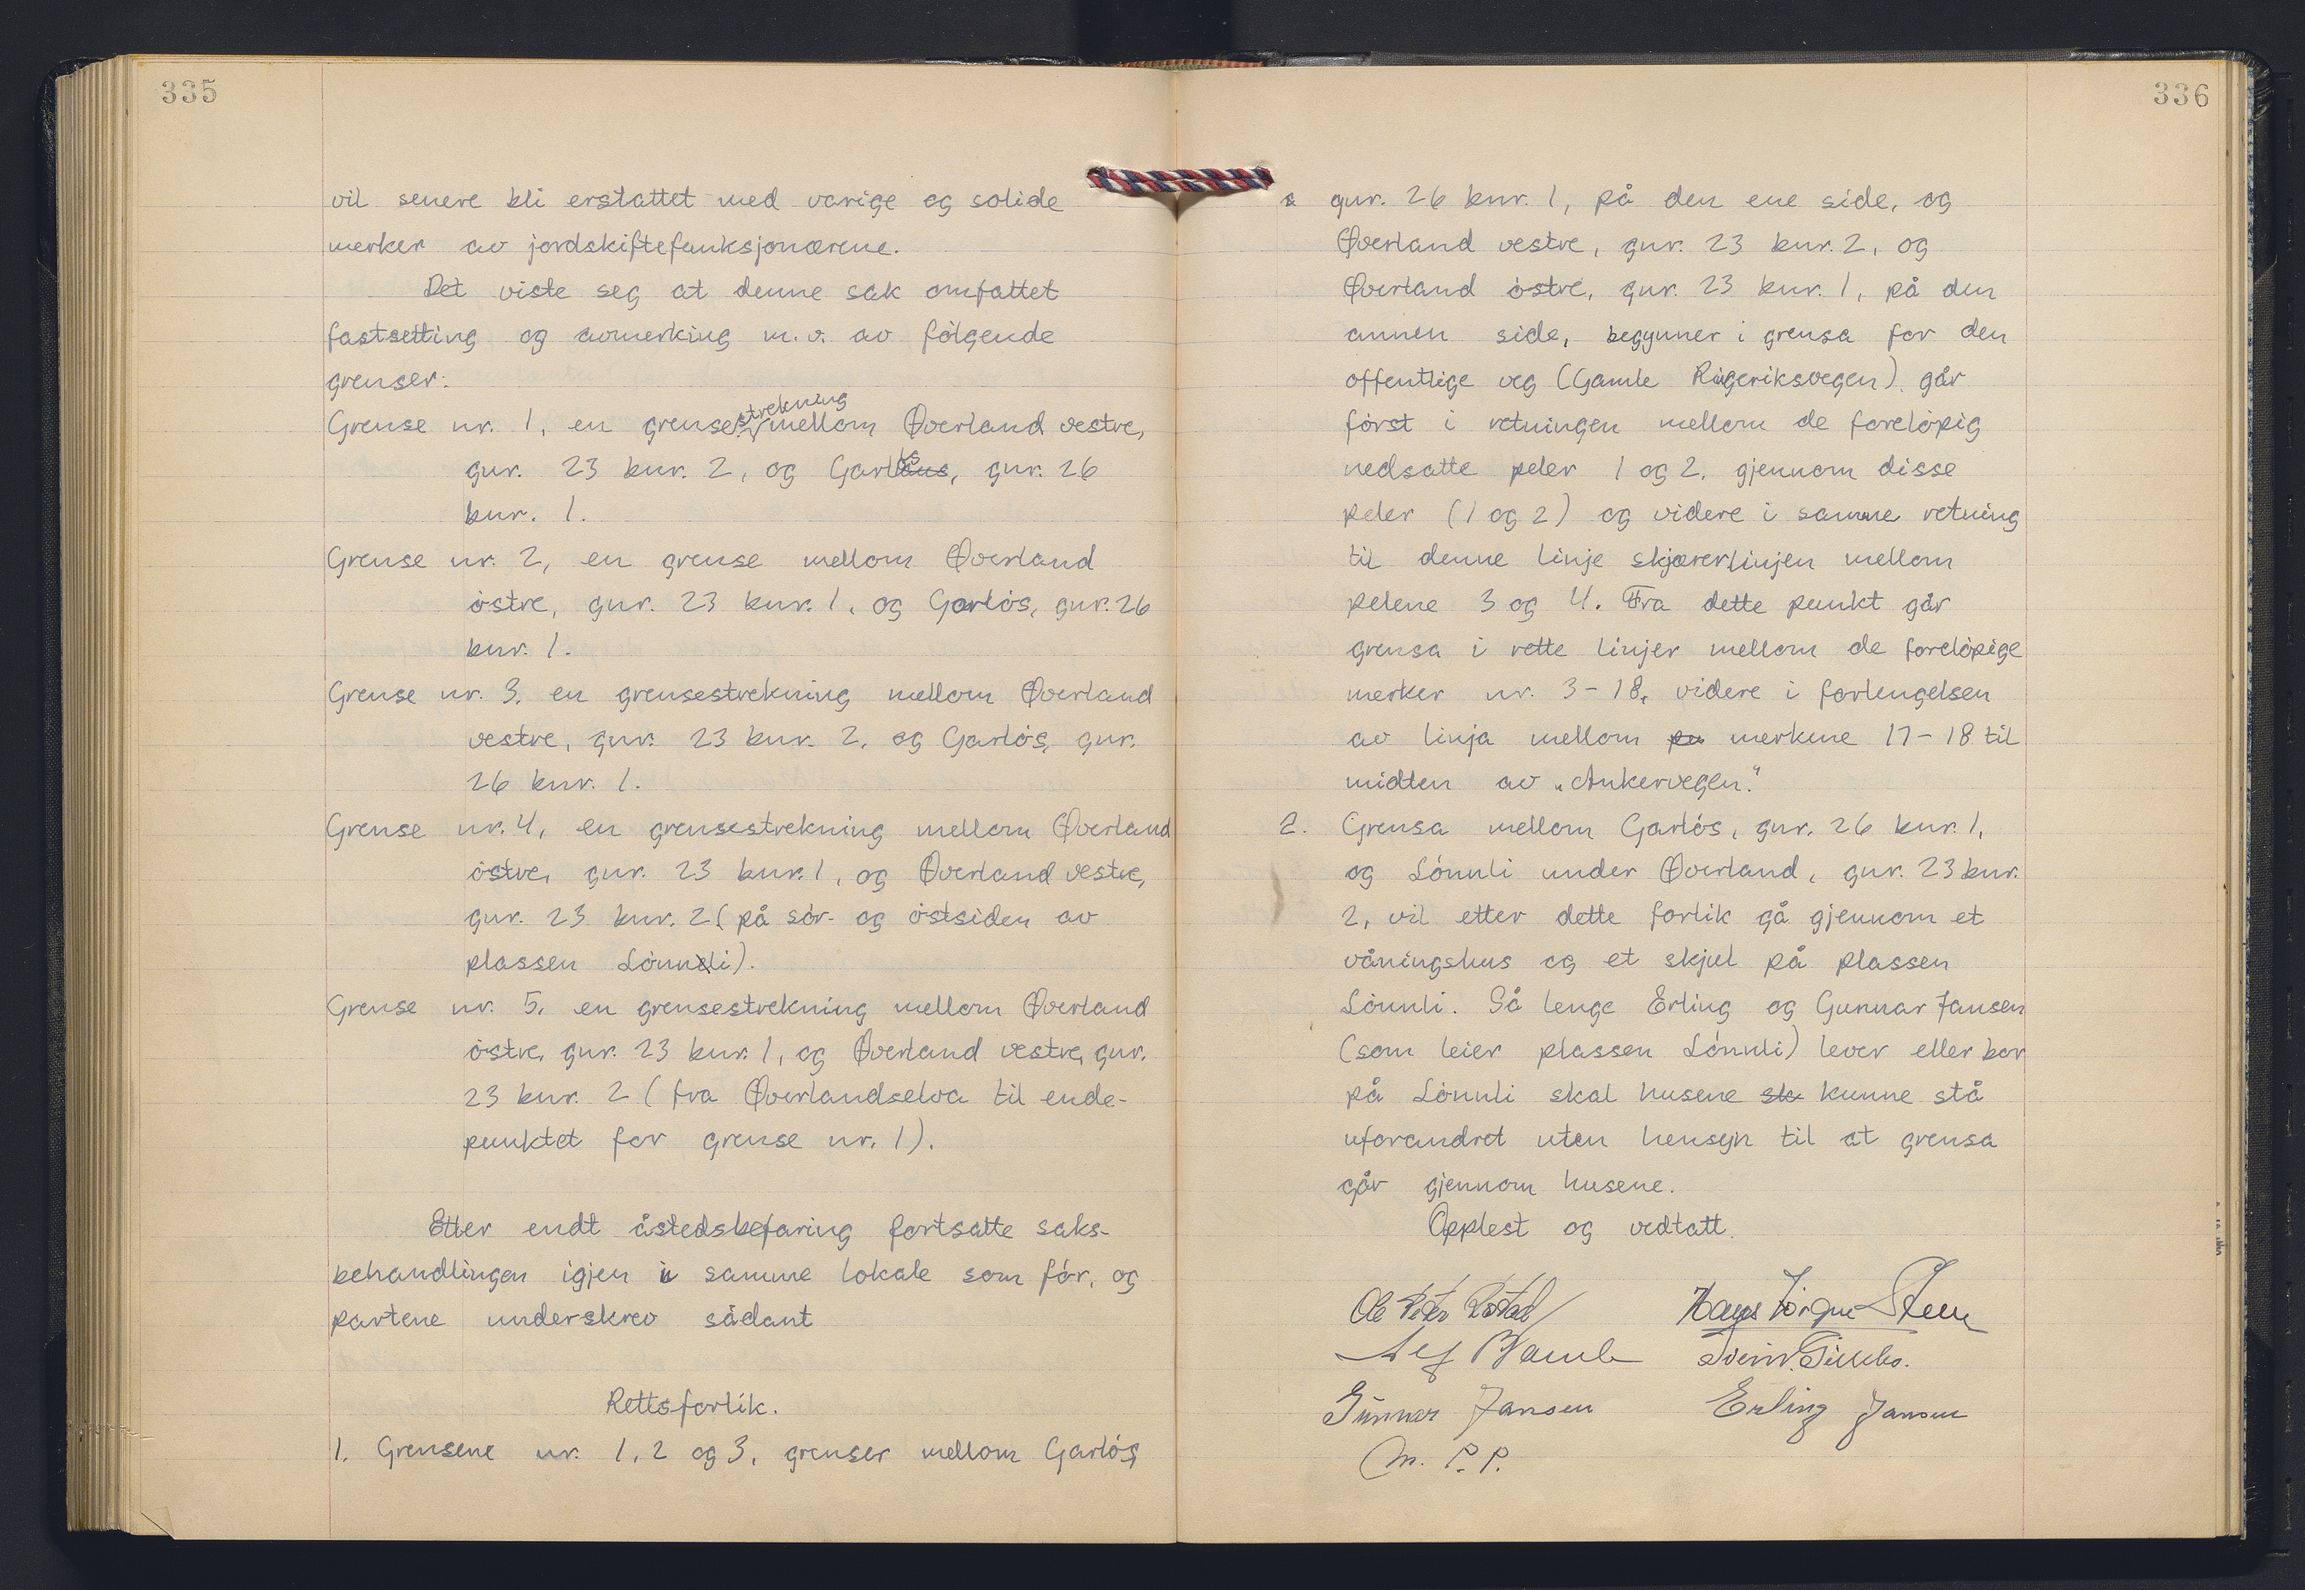 335
vil senere bli erstattet med varige og solide
merker av jordskiftefunksjonærene.
Det viste seg at denne sak omfattet
fastsetting og avmerking m.v. av følgende
grenser:
Grense nr. 1, en grensestrekning mellom Øverland vestre,
gnr. 23 bnr. 2, og Garløs, gnr. 26
bnr. 1.
Grense nr. 2, en grense mellom Øverland
østre, gnr. 23 bnr. 1, og Garløs, gnr. 26
bnr. 1.
Grense nr. 3, en grensestrekning mellom Øverland
vestre, gnr. 23 bnr. 2, og Garløs, gnr.
26 bnr. 1.
Grense nr. 4, en grensestrekning mellom Øverland
østre, gnr. 23 bnr. 1, og Øverland vestre,
gnr. 23 bnr. 2 (på sør- og østsiden av
plassen Lønnli).
Grense nr. 5, en grensestrekning mellom Øverland
østre, gnr. 23 bnr. 1, og Øverland vestre, gnr.
23 bnr. 2 (fra Øverlandselva til ende-
punktet for grense nr. 1).
Etter endt åstedsbefaring fortsatte saks-
behandlingen igjen i samme lokale som før, og
partene underskrev sådant
Rettsforlik.
1. Grensene nr. 1, 2 og 3, grenser mellom Garløs,
336
gnr. 26 bnr. 1, på den ene side, og
Øverland vestre, gnr. 23 bnr. 2, og
Øverland østre, gnr. 23 bnr. 1, på den
annen side, begynner i grensa for den
offentlige veg (Gamle Ringeriksvegen), går
først i retningen mellom de foreløpig
nedsatte peler 1 og 2, gjennom disse
peler (1 og 2) og videre i samme retning
til denne linje skjærer linjen mellom
pelene 3 og 4. Fra dette punkt går
grensa i rette linjer mellom de foreløpige
merker nr. 3-18, videre i forlengelsen
av linja mellom pu merkene 17-18 til
midten av „Ankervegen."
2. Grensa mellom Garløs, gnr. 26 bnr. 1,
og Lønnli under Øverland, gnr. 23 bnr.
2, vil etter dette forlik gå gjennom et
våningshus og et skjul på plassen
Lønnli. Så lenge Erling og Gunnar Jansen
(som leier plassen Lønnli) lever eller bor
på Lønnli skal husene sk kunne stå
uforandret uten hensyn til at grensa
går gjennom husene.
Opplest og vedtatt.
Ole Peter Hans Jørgen
Alf
Gunnar Jansen Erling Jansen
m. P. P.